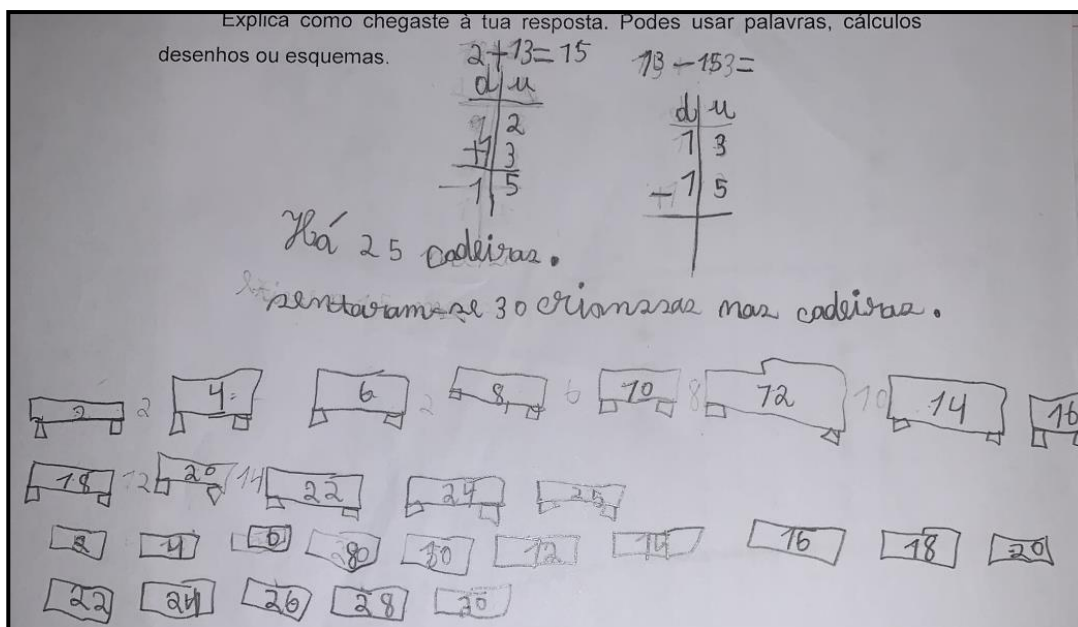 Explica como chegaste à tua resposta. Podes usar palavras, cálculos
desenhos ou esquemas.
2+13=15
d u
1 2
+1 3
1 5
13-153=
d u
1 3
+1 5
Há 25 cadeiras.
sentaram-se 30 crianssas nas cadeiras.
2 2 4 6 2 8 6 10 8 12 10 14 16
18 12 20 14 22 24 25
2 4 6 80 10 12 14 16 18 20
22 24 26 28 30